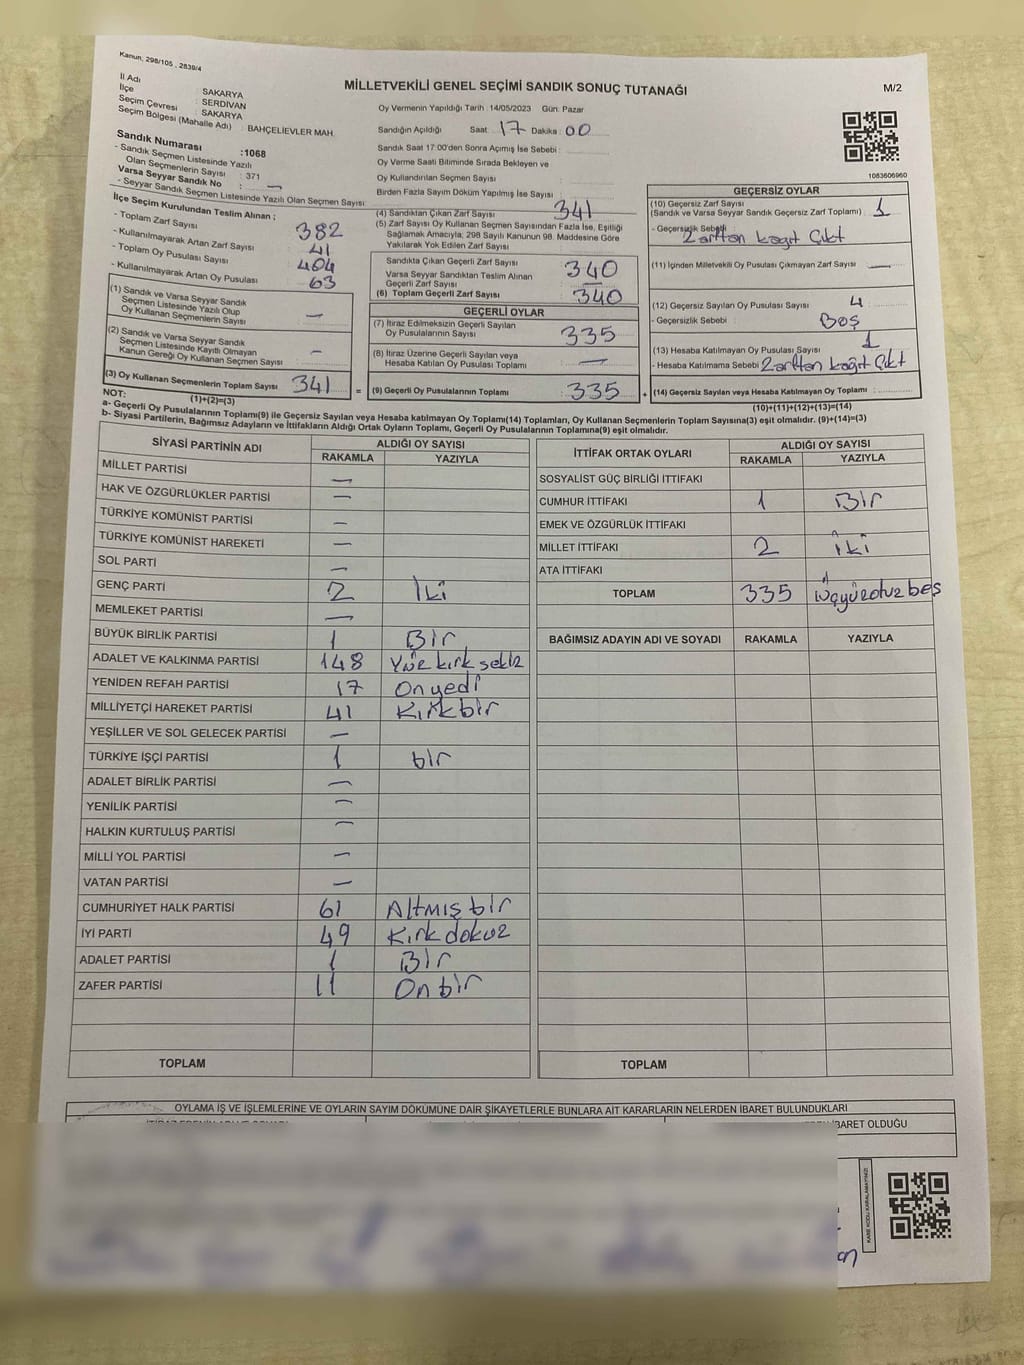 Kanun; 298/105 , 2839/4
MİLLETVEKİLİ GENEL SEÇİMİ SANDIK SONUÇ TUTANAĞI
M/2
İl Adı : SAKARYA
İlçe : SERDİVAN
Seçim Çevresi : SAKARYA
Seçim Bölgesi (Mahalle Adı) : BAHÇELİEVLER MAH.
Sandık Numarası :1068
- Sandık Seçmen Listesinde Yazılı
Olan Seçmenlerin Sayısı : 371
Varsa Seyyar Sandık No : —
- Seyyar Sandık Seçmen Listesinde Yazılı Olan Seçmen Sayısı
Oy Vermenin Yapıldığı Tarih : 14/05/2023 Gün: Pazar
Sandığın Açıldığı Saat : 17 Dakika : 00
Sandık Saat 17:00'den Sonra Açımış İse Sebebi :
Oy Verme Saati Bitiminde Sırada Bekleyen ve
Oy Kullandırılan Seçmen Sayısı :
Birden Fazla Sayım Döküm Yapılmış İse Sayısı :
1083606960
İlçe Seçim Kurulundan Teslim Alınan ;
- Toplam Zarf Sayısı 382
- Kullanılmayarak Artan Zarf Sayısı 41
- Toplam Oy Pusulası Sayısı 404
- Kullanılmayarak Artan Oy Pusulası 63
(1) Sandık ve Varsa Seyyar Sandık
Seçmen Listesinde Yazılı Olup
Oy Kullanan Seçmenlerin Sayısı —
(2) Sandık ve Varsa Seyyar Sandık
Seçmen Listesinde Kayıtlı Olmayan
Kanun Gereği Oy Kullanan Seçmen Sayısı —
(3) Oy Kullanan Seçmenlerin Toplam Sayısı 341
(1)+(2)=(3)
(4) Sandıktan Çıkan Zarf Sayısı 341
(5) Zarf Sayısı Oy Kullanan Seçmen Sayısından Fazla İse, Eşitliği
Sağlamak Amacıyla, 298 Sayılı Kanunun 98. Maddesine Göre
Yakılarak Yok Edilen Zarf Sayısı
Sandıkta Çıkan Geçerli Zarf Sayısı 340
Varsa Seyyar Sandıktan Teslim Alınan
Geçerli Zarf Sayısı —
(6) Toplam Geçerli Zarf Sayısı 340
GEÇERLİ OYLAR
(7) İtiraz Edilmeksizin Geçerli Sayılan
Oy Pusulalarının Sayısı 335
(8) İtiraz Üzerine Geçerli Sayılan veya
Hesaba Katılan Oy Pusulası Toplamı —
= (9) Geçerli Oy Pusulalarının Toplamı 335 +
GEÇERSİZ OYLAR
(10) Geçersiz Zarf Sayısı
(Sandık ve Varsa Seyyar Sandık Geçersiz Zarf Toplamı) 1
- Geçersizlik Sebebi : Zarftan kağıt Çıkt
(11) İçinden Milletvekili Oy Pusulası Çıkmayan Zarf Sayısı —
(12) Geçersiz Sayılan Oy Pusulası Sayısı : 4
- Geçersizlik Sebebi : Boş
(13) Hesaba Katılmayan Oy Pusulası Sayısı 1
- Hesaba Katılmama Sebebi Zarftan kağıt Çıkt
(14) Geçersiz Sayılan veya Hesaba Katılmayan Oy Toplamı :
(10)+(11)+(12)+(13)=(14)
NOT:
a- Geçerli Oy Pusulalarının Toplamı(9) ile Geçersiz Sayılan veya Hesaba katılmayan Oy Toplam(14) Toplamları, Oy Kullanan Seçmenlerin Toplam Sayısına(3) eşit olmalıdır. (9)+(14)=(3)
b- Siyasi Partilerin, Bağımsız Adayların ve İttifakların Aldığı Ortak Oyların Toplamı, Geçerli Oy Pusulalarının Toplamına(9) eşit olmalıdır.
SİYASİ PARTİNİN ADI ALDIĞI OY SAYISI
RAKAMLA YAZIYLA
MİLLET PARTİSİ —
HAK VE ÖZGÜRLÜKLER PARTİSİ —
TÜRKİYE KOMÜNİST PARTİSİ —
TÜRKİYE KOMÜNİST HAREKETİ —
SOL PARTİ —
GENÇ PARTİ 2 İki
MEMLEKET PARTİSİ —
BÜYÜK BİRLİK PARTİSİ 1 Bir
ADALET VE KALKINMA PARTİSİ 148 Yüz kırk sekiz
YENİDEN REFAH PARTİSİ 17 Onyedi
MİLLİYETÇİ HAREKET PARTİSİ 41 Kırkbir
YEŞİLLER VE SOL GELECEK PARTİSİ —
TÜRKİYE İŞÇİ PARTİSİ 1 bir
ADALET BİRLİK PARTİSİ —
YENİLİK PARTİSİ —
HALKIN KURTULUŞ PARTİSİ —
MİLLİ YOL PARTİSİ —
VATAN PARTİSİ —
CUMHURİYET HALK PARTİSİ 61 Altmış bir
İYİ PARTİ 49 Kırk dokuz
ADALET PARTİSİ 1 Bir
ZAFER PARTİSİ 11 On bir
TOPLAM
İTTİFAK ORTAK OYLARI ALDIĞI OY SAYISI
RAKAMLA YAZIYLA
SOSYALIST GÜÇ BİRLİĞİ İTTİFAKI
CUMHUR İTTİFAKI 1 Bir
EMEK VE ÖZGÜRLÜK İTTİFAKI
MİLLET İTTİFAKI 2 İki
ATA İTTİFAKI
TOPLAM 335 üçyüzotuz beş
BAĞIMSIZ ADAYIN ADI VE SOYADI RAKAMLA YAZIYLA
TOPLAM
OYLAMA İŞ VE İŞLEMLERİNE VE OYLARIN SAYIM DÖKÜMÜNE DAİR ŞİKAYETLERLE BUNLARA AİT KARARLARIN NELERDEN İBARET BULUNDUKLARI
İBARET OLDUĞU